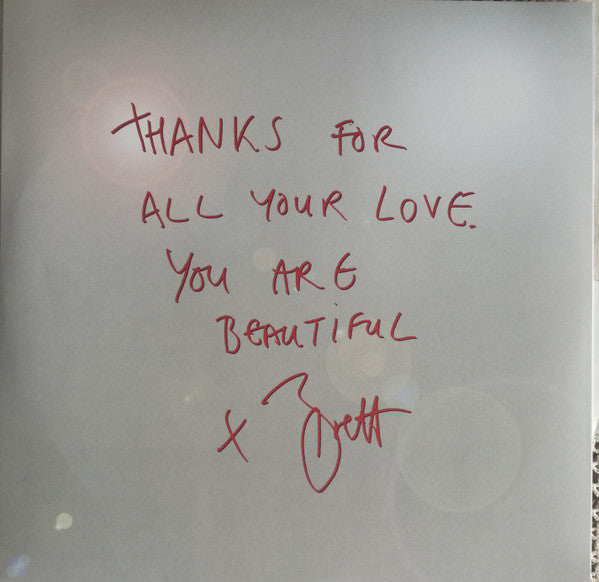 THANKS FOR
ALL YOUR LOVE.
YOU ARE
BEAUTIFUL
x Brett